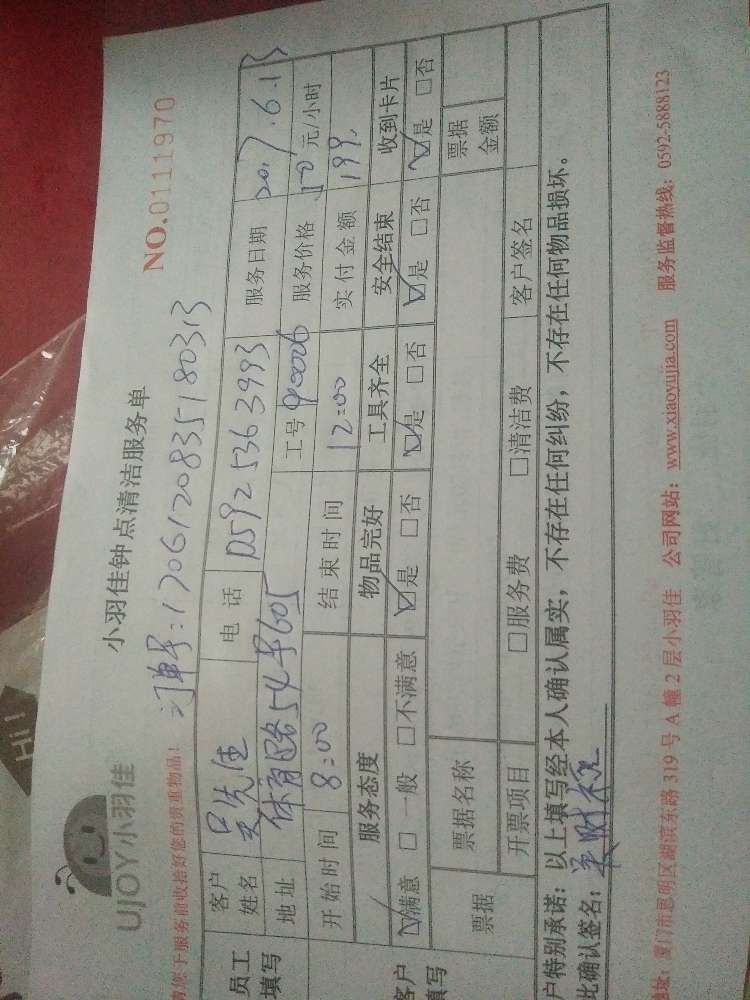 HI!
UJOY小羽佳
小羽佳钟点清洁服务单
NO.0111970
您于服务前收拾好您的贵重物品!
订单号:1706120835180313
员工填写
客户姓名 吴先生 电话 05925363993 服务日期 2017.6.13
地址 体育路54号605 工号 90006 服务价格 50元/小时
开始时间 8:00 结束时间 12:00 实付金额 199.
服务态度 物品完好 工具齐全 安全结束 收到卡片
☑满意 □一般 □不满意 ☑是 □否 ☑是 □否 ☑是 □否 ☑是 □否
客户填写
票据 票据名称 票据金额
开票项目 □服务费 □清洁费 客户签名
户特别承诺:以上填写经本人确认属实,不存在任何纠纷,不存在任何物品损坏。
比确认签名:
地址:厦门市思明区湖滨东路319号A幢2层小羽佳 公司网站:www.xiaoyujia.com 服务监督热线:0592-5888123